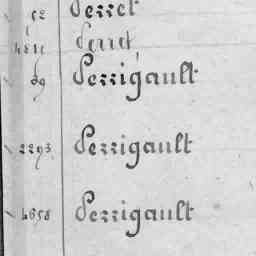 52 Perret
4811 Perret
69 Perrigault
2293 Perrigault
4658 Perrigault